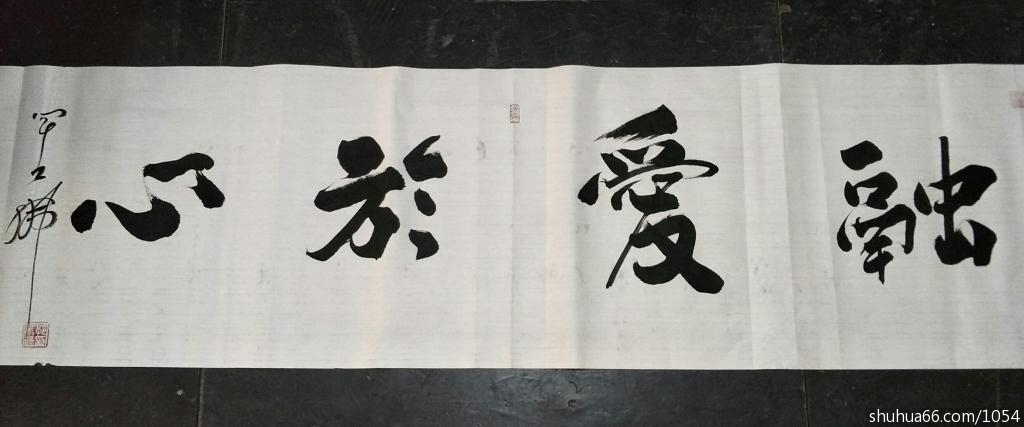 融愛於心
shuhua66.com/1054